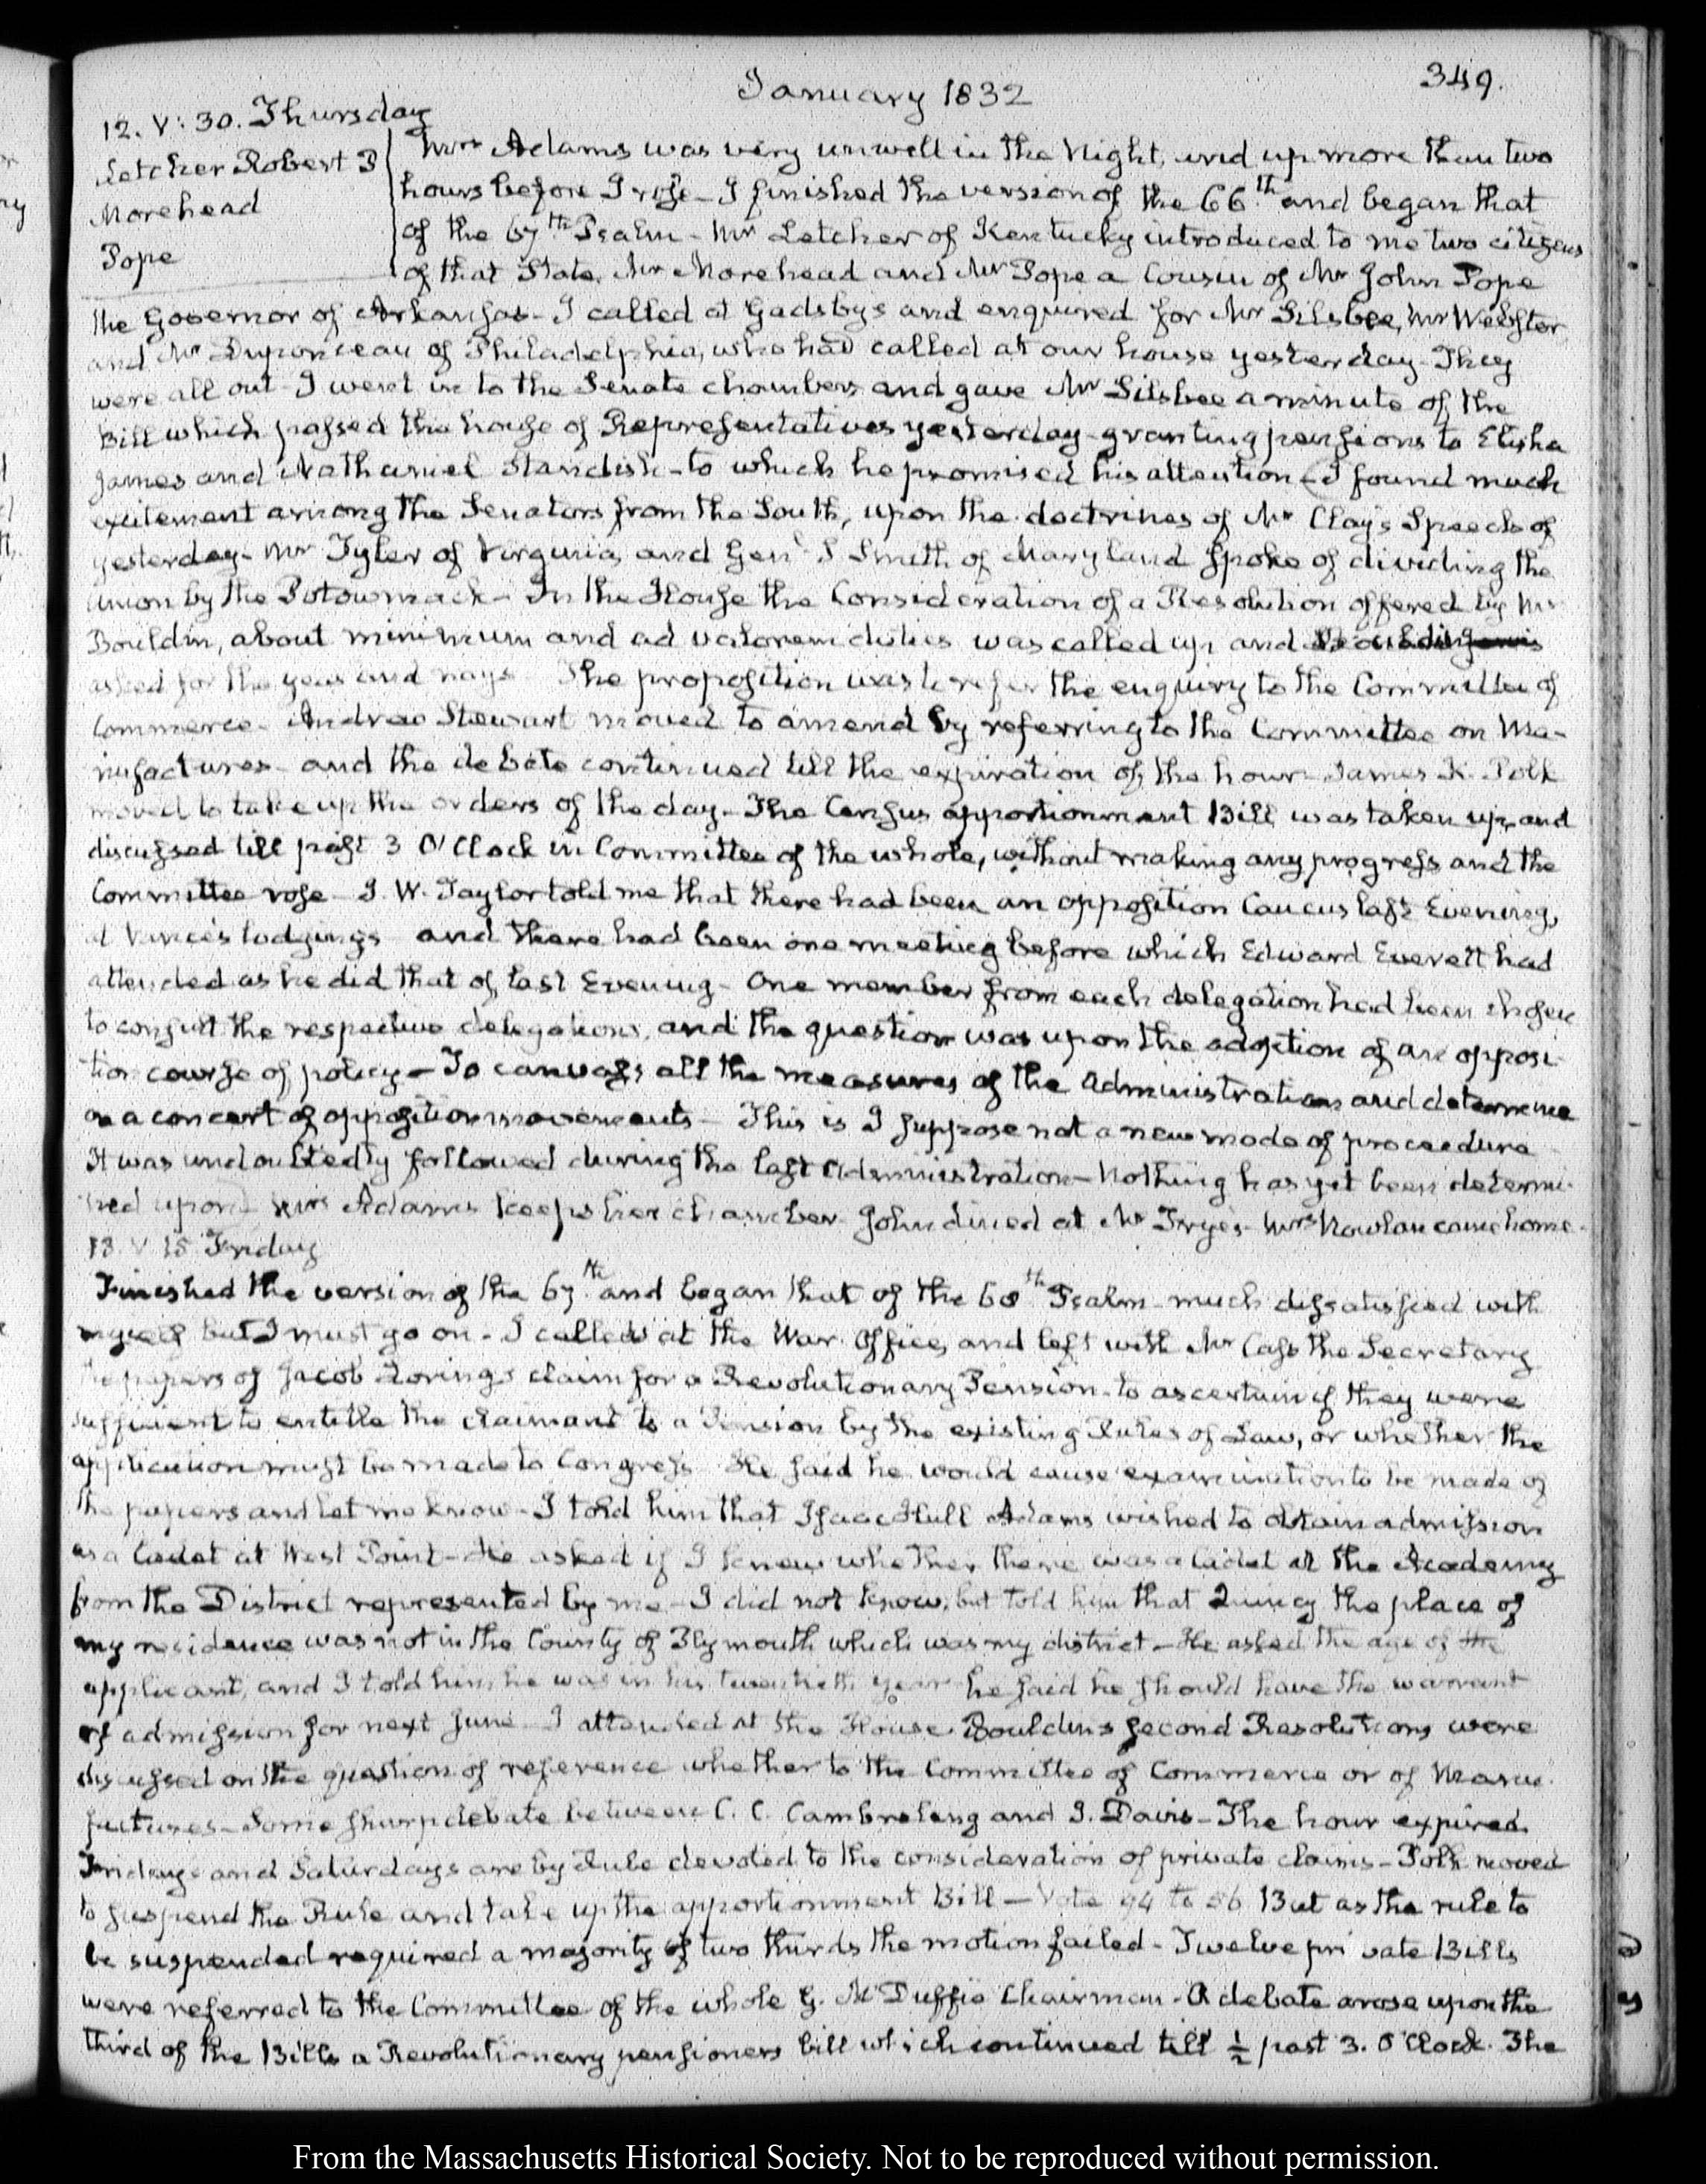 January 1832
349.
12. V: 30. Thursday
Letcher Robert P
Morehead
Pope
Mrs Adams was very unwell in the Night, and up more than two
hours before I rose_ I finished the version of the 66.th and began that
of the 67th Psalm_ Mr Letcher of Kentucky introduced to me two citizens
of that State. Mr Morehead and Mr Pope a Cousin of Mr John Pope
the Governor of Arkansas_ I called at Gadsby's and enquired for Mr Silsbee, Mr Webster
and Mr Duponceau of Philadelphia, who had called at our house yesterday_ They
were all out_ I went in to the Senate chamber, and gave Mr Silsbee a minute of the
Bill which passed the house of Representatives yesterday granting pensions to Elisha
James and Nathaniel Standish_ to which he promised his attention_ (I found much
excitement among the Senators from the South, upon the doctrines of Mr Clay's Speech of
yesterday_ Mr Tyler of Virginia, and Genl S Smith of Maryland spoke of dividing the
Union by the Potowmack_ In the House the Consideration of a Resolution offered by Mr
Bouldin, about minimum and ad valorem duties was called up, and
asked for the yeas and nays_ The proposition was to refer the enquiry to the Committee of
Commerce_ Andrew Stewart moved to amend by referring to the Committee on Ma-
nufactures_ and the debate continued till the expiration of the hour_ James K. Polk
moved to take up the orders of the day_ The Census apportionment Bill was taken up, and
discussed till past 3 O'Clock in Committee of the whole, without making any progress and the
Committee rose_ J. W. Taylor told me that there had been an opposition Caucus last Evening,
at Vance's lodgings and there had been one meeting before which Edward Everett had
attended as he did that of last Evening_ One member from each delegation had been chosen
to consult the respective delegations, and the question was upon the adoption of an opposi-
tion course of policy_ To canvass all the measures of the Administration and determine
on a concert of opposition movements_ This is I suppose not a new mode of procedure
It was undoubtedly followed during the last Administration_ Nothing has yet been determi-
ned upon) Mrs Adams keeps her chamber_ John dined at Mr Frye's_ Mrs Nowlan came home_
13. V 15 Friday
Finished the version of the 67.th and began that of the 68th Psalm_ much dissatisfied with
myself but I must go on_ I called at the War Office, and left with Mr Cass the Secretary
the papers of Jacob Loring's claim for a Revolutionary Pension_ to ascertain if they were
sufficient to entitle the claimant to a Pension by the existing Rules of Law, or whether the
application must be made to Congress_ He said he would cause examination to be made of
the papers and let me know_ I told him that Isaac Hull Adams wished to obtain admission
as a Cadet at West Point_ He asked if I knew whether there was a Cadet at the Academy
from the District represented by me_ I did not know, but told him that Quincy the place of
my residence was not in the County of Plymouth which was my district_ He asked the age of the
applicant, and I told him he was in his twentieth year_ he said he should have the warrant
of admission for next June_ I attended at the House. Bouldin's second Resolutions were
discussed on the question of reference whether to the Committee of Commerce or of Manu-
factures_ Some sharp debate between C. C. Cambreleng and J. Davis_ The hour expired.
Fridays and Saturdays are by Rule devoted to the consideration of private claims_ Polk moved
to suspend the Rule and take up the apportionment Bill_ Vote 94 to 86 But as the rule to
be suspended required a majority of two thirds the motion failed_ Twelve private Bills
were referred to the Committee of the whole G. McDuffie Chairman_ A debate arose upon the
third of the Bills a Revolutionary pensioners bill which continued till ½ past 3. O'Clock. The
From the Massachusetts Historical Society. Not to be reproduced without permission.